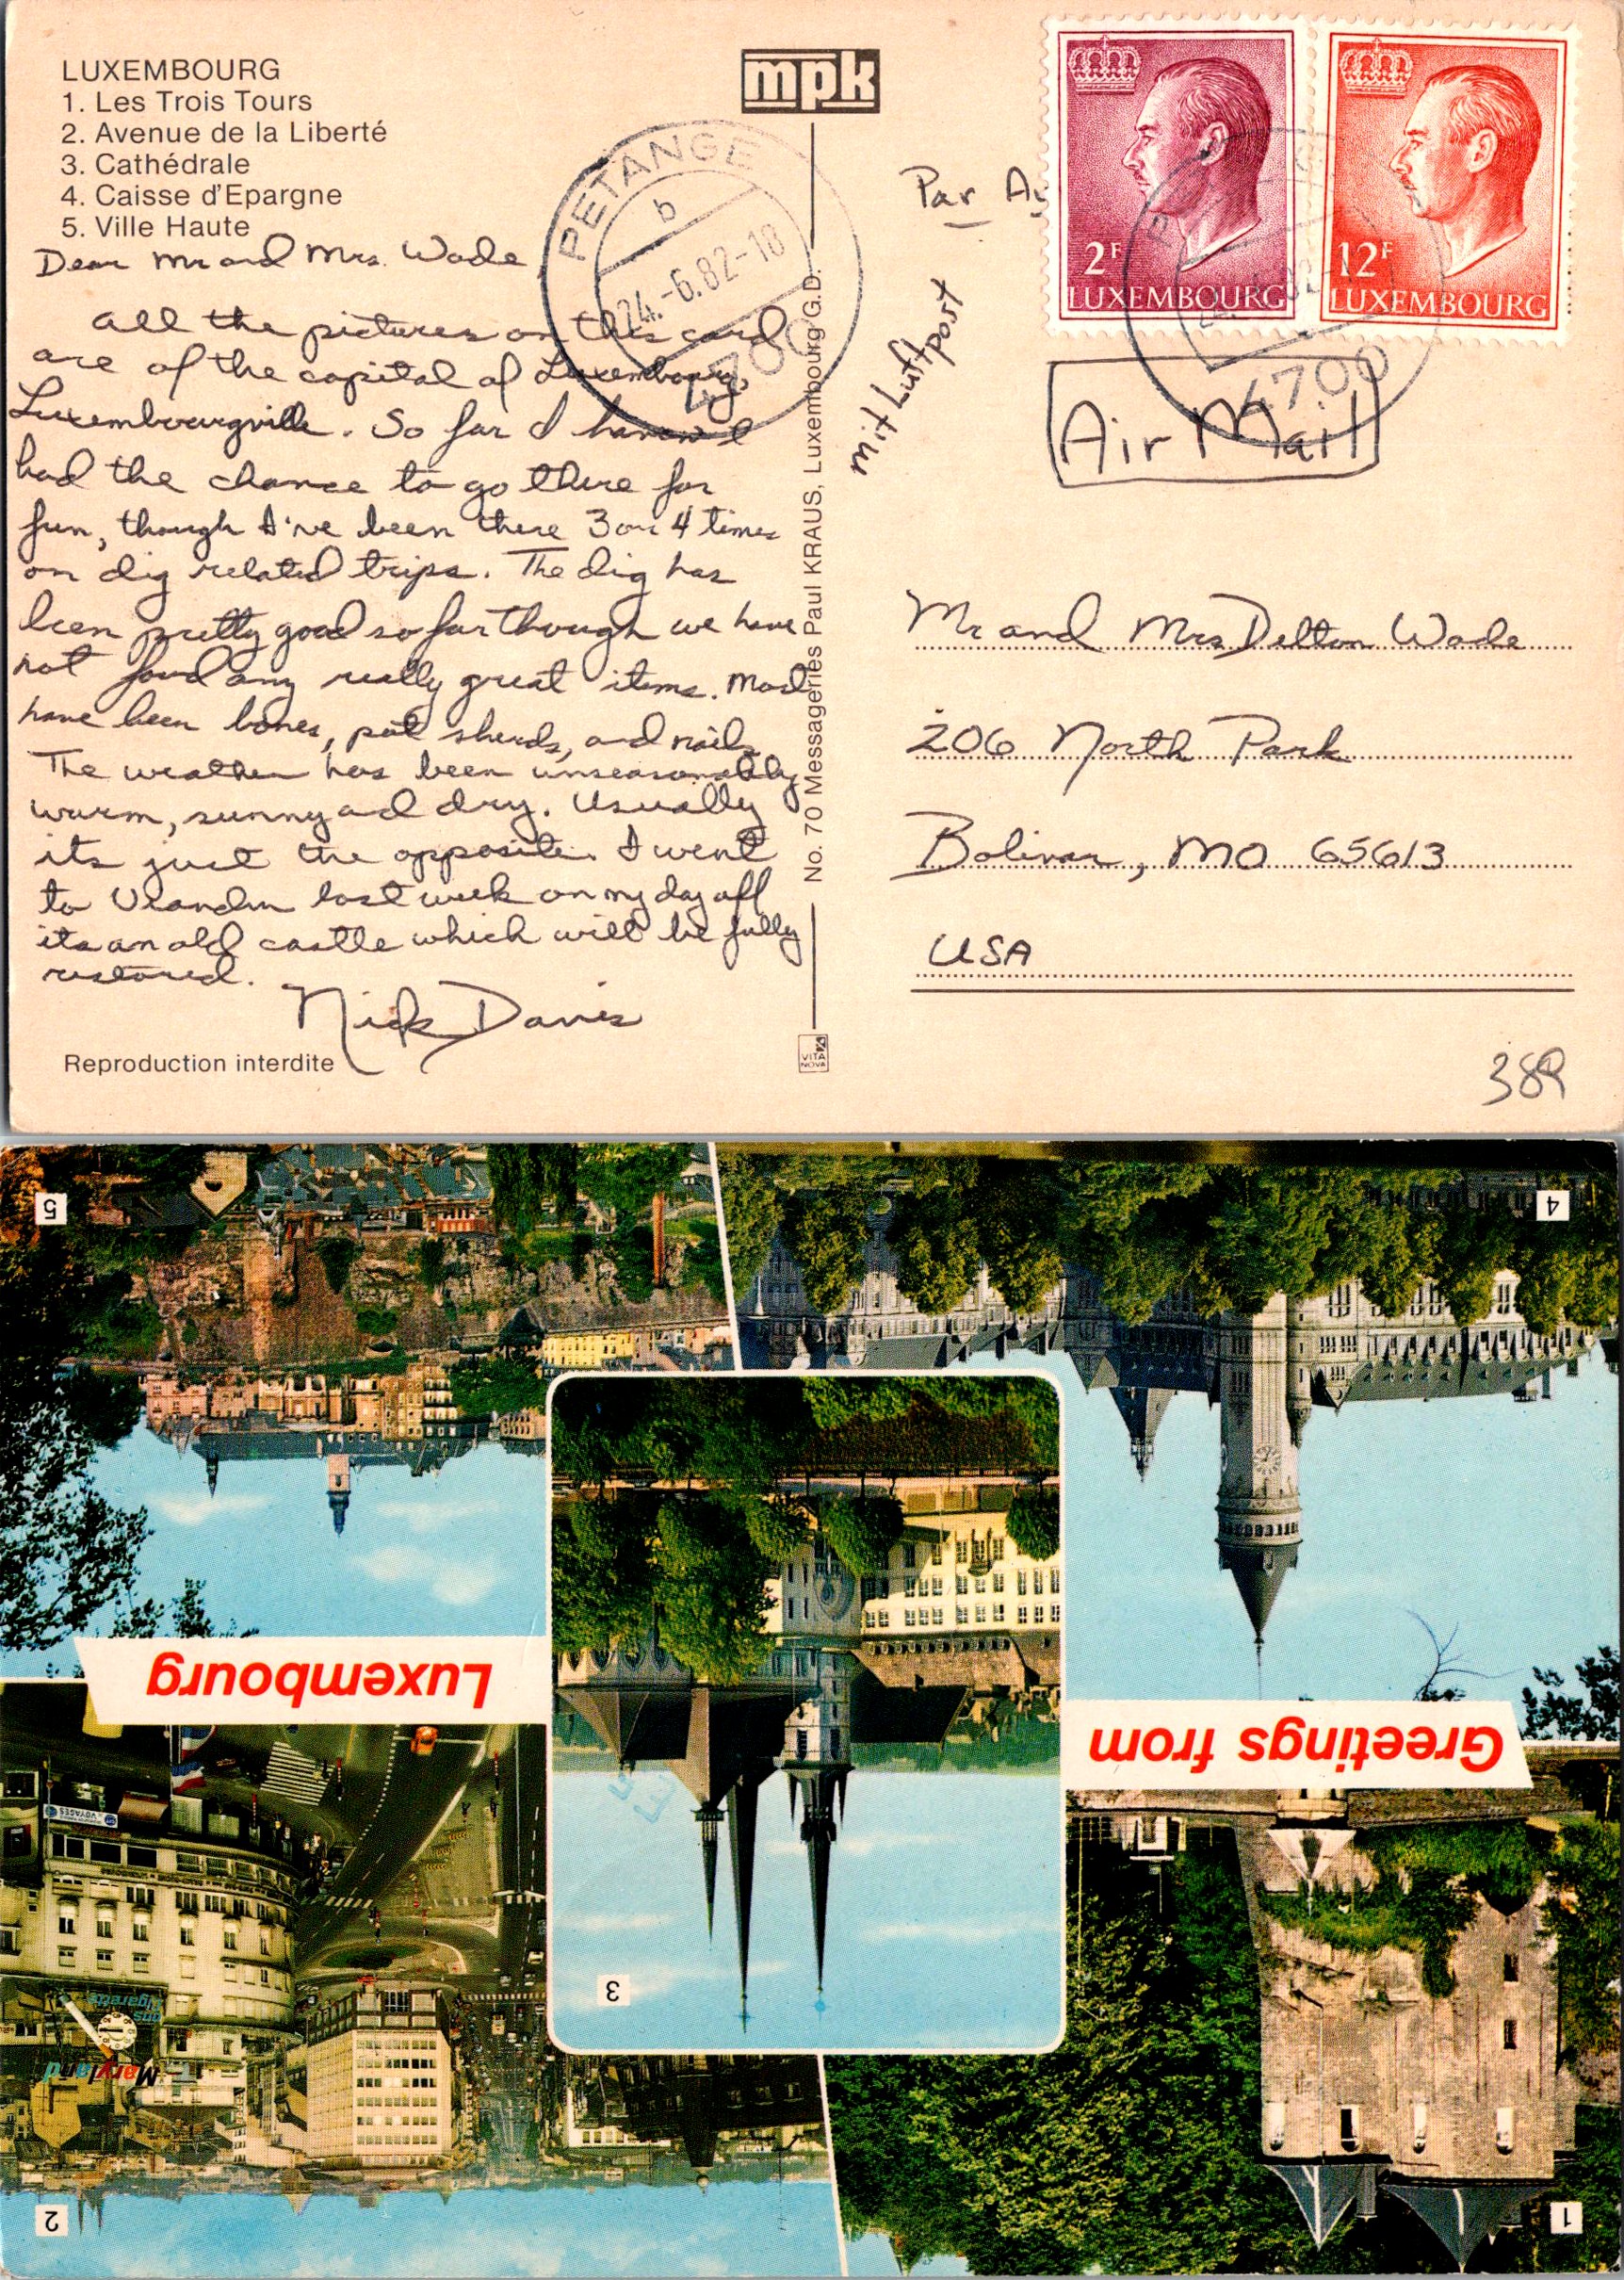 LUXEMBOURG
1. Les Trois Tours
2. Avenue de la Liberté
3. Cathédrale
4. Caisse d'Epargne
5. Ville Haute
Dear Mr and Mrs. Wade
All the pictures on this card
are of the capital of Luxembourg,
Luxembourgville. So far I haven't
had the chance to go there for
fun, though I've been there 3 or 4 times
on dig related trips. The dig has
been pretty good so far though we have
not found any really great items. Most
have been bones, pot sherds, and nails.
The weather has been unseasonably
warm, sunny and dry. Usually
its just the opposite. I went
to Vianden last week on my day off
its an old castle which will be fully
restored.
Nick Davis
Reproduction interdite
mpk
PETANGE
b
24.-6.82-18
4700
No. 70 Messageries Paul KRAUS, Luxembourg G.D.
VITA
NOVA
Par
2F
LUXEMBOURG
12F
LUXEMBOURG
4700
mit Luftpost
Air Mail
Mr and Mrs Delton Wade
206 North Park
Bolivar, MO 65613
USA
389
5
4
Luxembourg
Greetings from
VOYAGES
3
cigarettes
Maryland
2
1